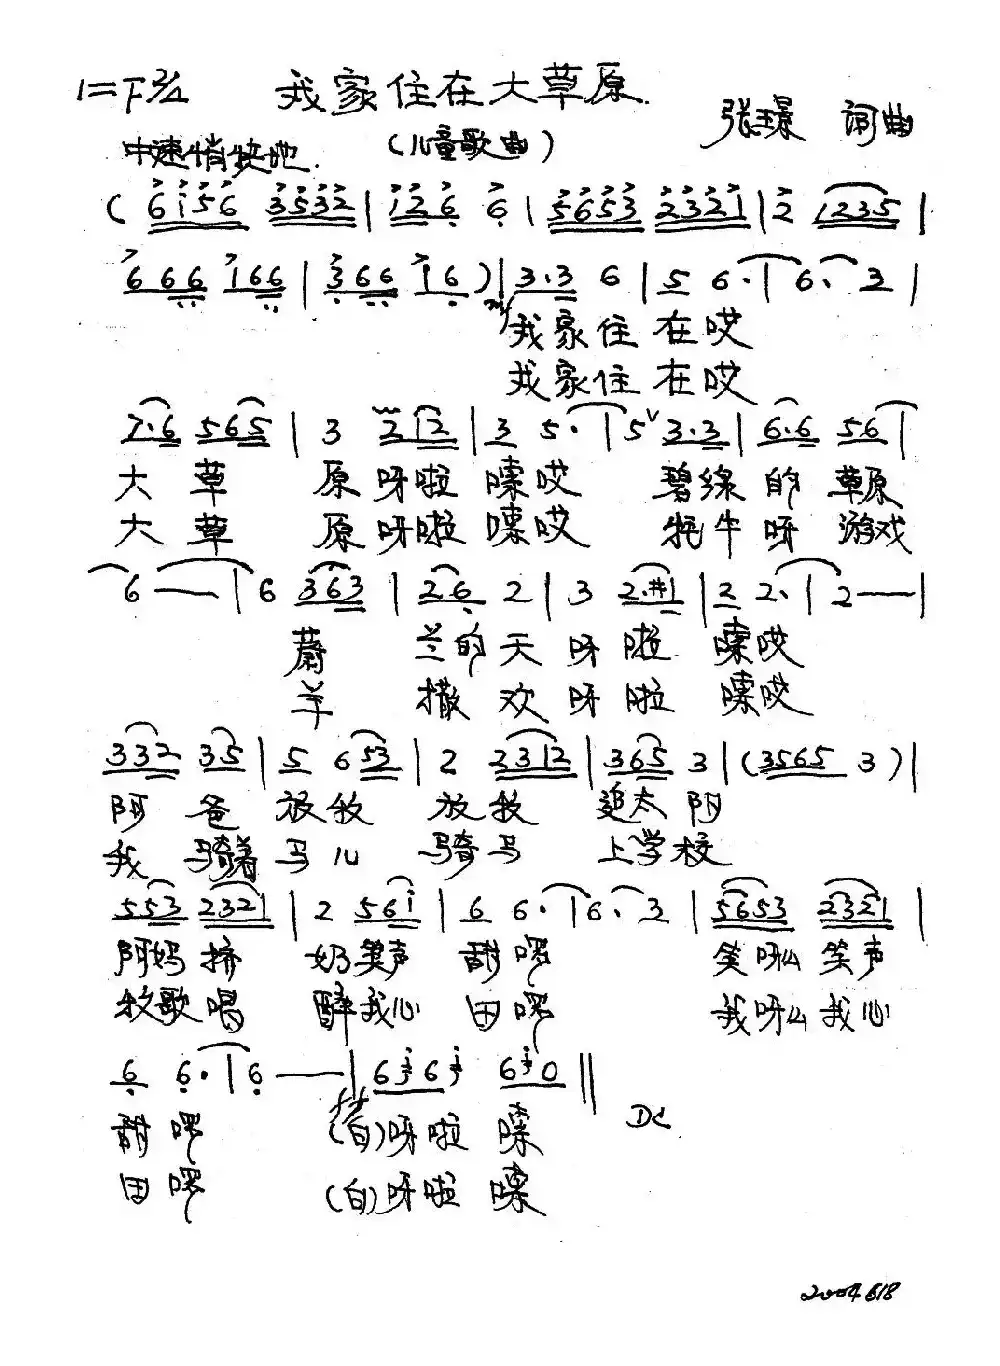 1=F 2/4 我家住在大草原
张璟 词曲
中速稍快地 (儿童歌曲)
( 6i56 3532 | i26 6 | 5653 2321 | 2 1235 |
666 166 | 366 16 ) | 3·3 6 | 5 6· | 6· 3 |
mf
我家住 在哎
我家住 在哎
1·6 565 | 3 212 | 3 5· | 5 3·3 | 6·6 56 |
大草 原呀啦 嗦哎 碧绿的 草原
大草 原呀啦 嗦哎 牦牛呀 游戏
6 — | 6 363 | 2·6 2 | 3 2·#1 | 2 2· | 2 — |
蔚 兰的天 呀啦 嗦哎
羊 撒欢 呀啦 嗦哎
332 35 | 5 653 | 2 2312 | 365 3 | (3565 3) |
阿爸 放牧 放牧 追太阳
我骑着 马儿 骑马 上学校
553 2321 | 2 56i | 6 6· | 6· 3 | 5653 2321 |
阿妈挤 奶笑声 甜啰 笑呀么笑声
牧歌唱 醉我心 田啰 我呀么我心
6 6· | 6 — | 6 6 60 ‖
ff
DC
甜啰 (白)呀啦嗦
田啰 (白)呀啦嗦
2004 618